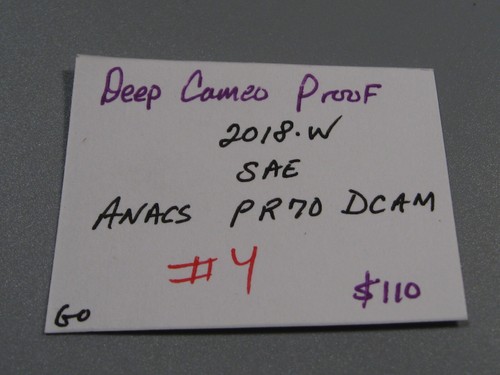 Deep Cameo Proof
2018.W
SAE
ANACS PR70 DCAM
#4
$110
GO